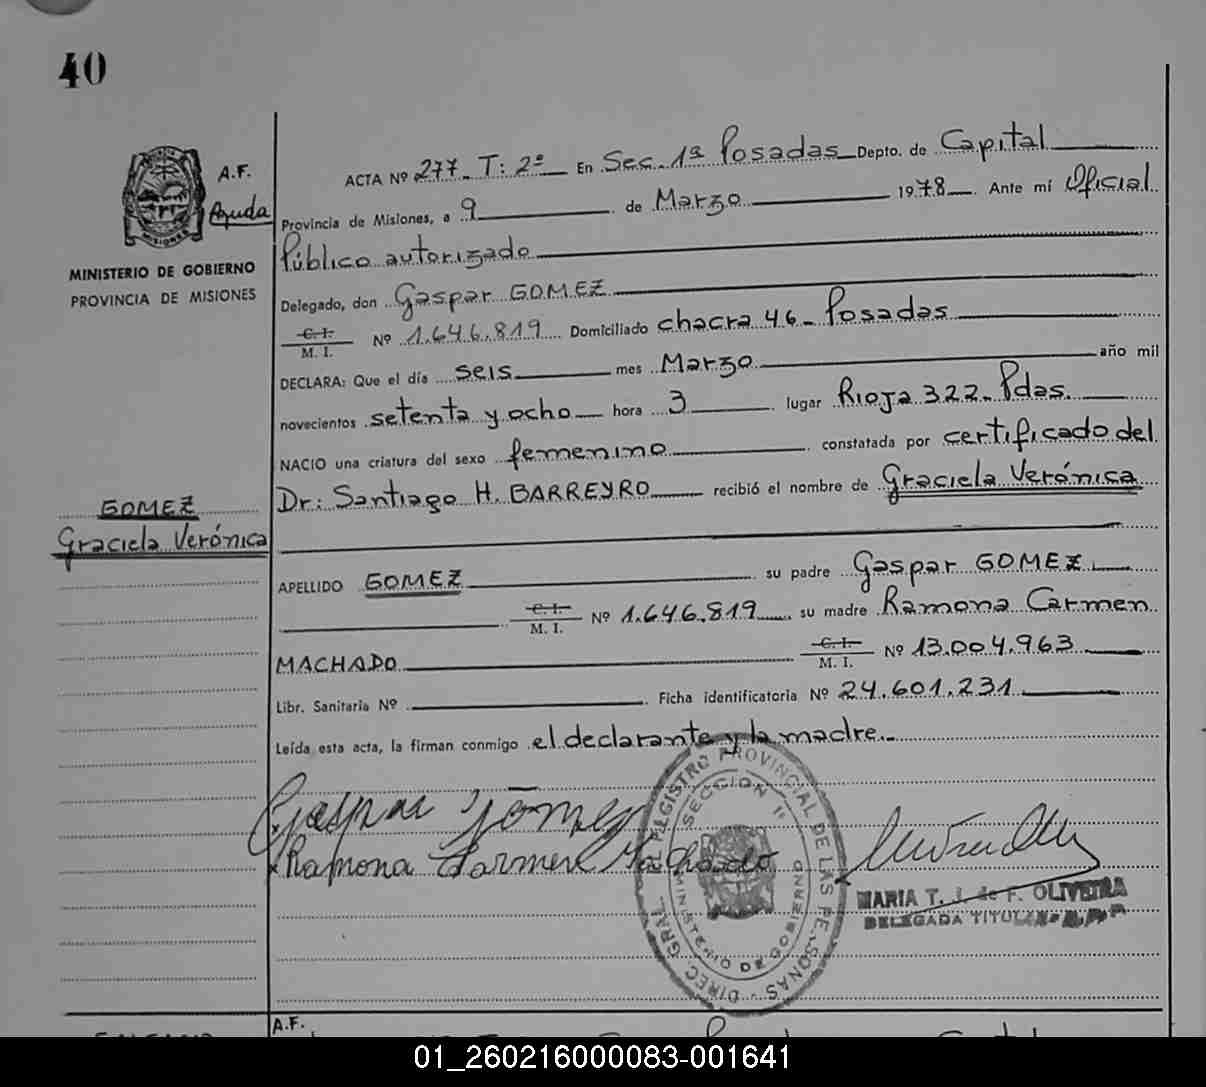 40
A.F.
Ayuda
MINISTERIO DE GOBIERNO
PROVINCIA DE MISIONES
ACTA Nº 277 - T: 2º En Sec. 1ª Posadas Depto. de Capital
Provincia de Misiones, a 9 de Marzo 1978. Ante mí Oficial
Público autorizado
Delegado, don Gaspar GOMEZ
C. I.
M. I. Nº 1.646.819 Domiciliado chacra 46 - Posadas
DECLARA: Que el día seis mes Marzo año mil
novecientos setenta y ocho hora 3 lugar Rioja 322 - Pdas.
NACIO una criatura del sexo femenino constatada por certificado del
Dr: Santiago H. BARREYRO recibió el nombre de Graciela Verónica
GOMEZ
Graciela Verónica
APELLIDO GOMEZ su padre Gaspar GOMEZ
C. I.
M. I. Nº 1.646.819 su madre Ramona Carmen
MACHADO C. I.
M. I. Nº 13.004.963
Libr. Sanitaria Nº Ficha identificatoria Nº 24.601.231
Leída esta acta, la firman conmigo el declarante y la madre.-
Gaspar Gómez
Ramona Carmen Machado
DIREC. GRAL. REGISTRO PROVINCIAL DE LAS PERSONAS
SECCION 1ª
MINISTERIO DE GOBIERNO
MARIA T. J. de F. OLIVEIRA
DELEGADA TITULAR
A.F.
01_260216000083-001641